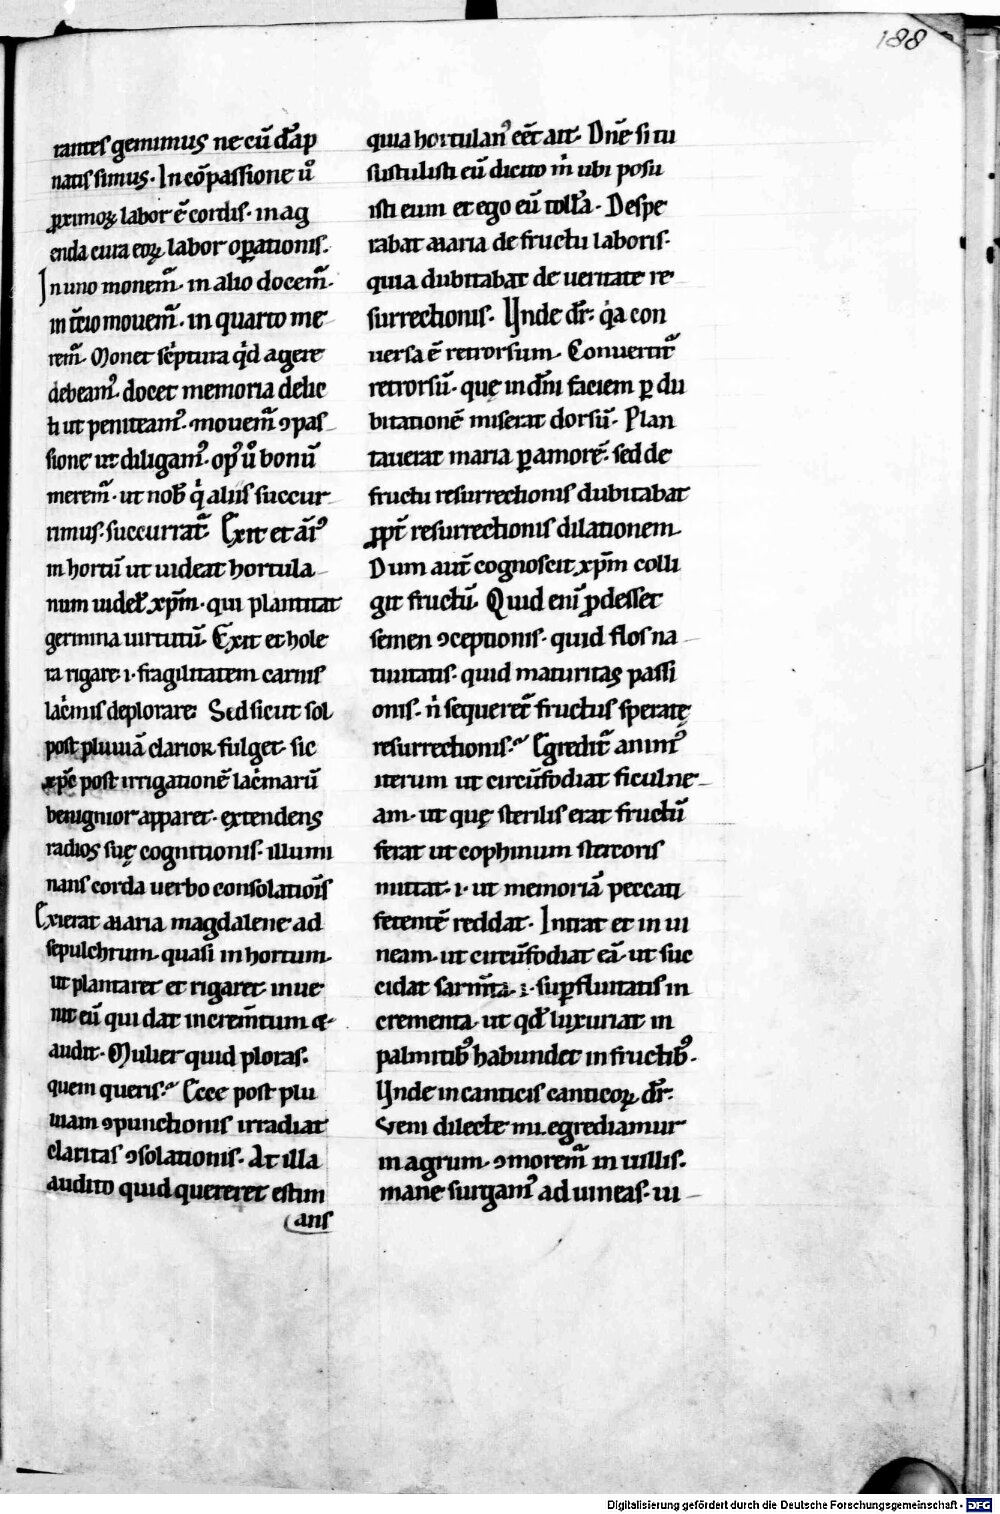 188
tantes gemimus ne cū dāp
natis simus. In cōpassione ū
ꝓximoꝝ labor ē cordis. in ag
enda cura eoꝝ labor oꝑationis.
In uno monem̄. in alio docem̄.
in t̄cio mouem̄. in quarto me
rem̄. Monet sc̄ptura qd̄ agere
debeamꝰ. docet memoria delic
ti ut peniteamꝰ. mouem̄ ꝯpas
sione ut diligamꝰ. opꝰ ū bonū
merem̄. ut nob̄ q̇ aliis succur
rimus. succurrat̄. Exit et āīꝰ
in hortū ut uideat hortula
num uidel̄. xp̄m. qui plantat
germina uirtutū. Exit et hole
ra rigare. i. fragilitatem carnis
lac̄mis deplorare. Sed sicut sol
post pluuiā clarior fulget. sic
xp̄c post irrigationē lac̄marū
benignior apparet. extendens
radios suę cognitionis. illumi
nans corda uerbo consolatiōis
Exierat maria magdalene ad
sepulchrum. quasi in hortum.
ut plantaret et rigaret. inue
nit eū qui dat increm̄tum et
audit. Mulier quid ploras.
quem queris? Ecce post plu
uiam ꝯpunctionis irradiat
claritas ꝯsolationis. At illa
audito quid quereret estim
ans
quia hortulanꝰ eēt ait. Dn̄e si tu
sustulisti eū dicito m̄ ubi posu
isti eum et ego eū toll̄a. Despe
rabat maria de fructu laboris.
quia dubitabat de ueritate re
surrectionis. Unde dr̄. q̇a con
uersa ē retrorsum. Conuertit̄
retrorsū. quę in dn̄i faciem ꝑ du
bitationē miserat dorsū. Plan
tauerat maria ꝑ amorē. sed de
fructu resurrectionis dubitabat
ꝓpt̄ resurrectionis dilationem.
Dum aut̄ cognoscit xp̄m colli
git fructū. Quid enī ꝓdesset
semen ꝯceptionis. quid flos na
tiuitatis. quid maturitas passi
onis. n̄ sequeret̄ fructus speratę
resurrectionis? Egredit̄ animꝰ
iterum ut circūfodiat ficulne
am. ut quę sterilis erat fructū
ferat ut cophinum stercoris
mittat. i. ut memoriā peccati
fetentē reddat. Intrat et in ui
neam. ut circūfodiat eā. ut suc
cidat sarm̄ta. i. suꝑfluitatis in
crementa. ut qd̄ luxuriat in
palmitibꝰ habundet in fructibꝰ.
Unde in canticis canticoꝝ dr̄.
Veni dilecte mi. egrediamur
in agrum. ꝯmorem̄ in uillis.
mane surgamꝰ ad uineas. ui
Digitalisierung gefördert durch die Deutsche Forschungsgemeinschaft - DFG